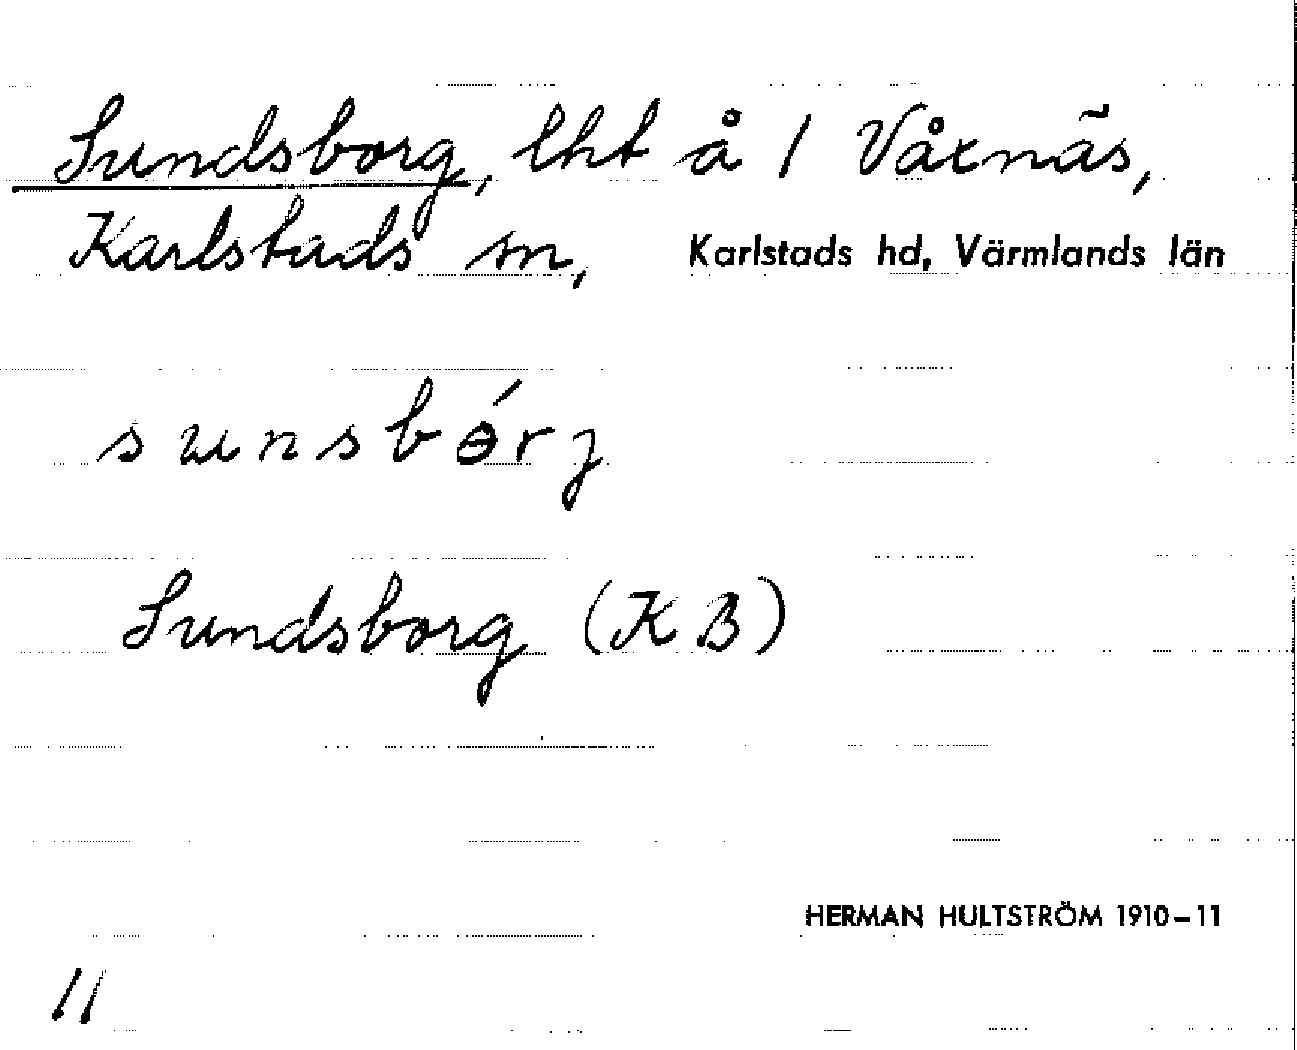 Sundsborg, lht å 1 Våxnäs,
Karlstads sn, Karlstads hd, Värmlands län
sunsbɵ́rj
Sundsborg (KB)
HERMAN HULTSTRÖM 1910–11
11